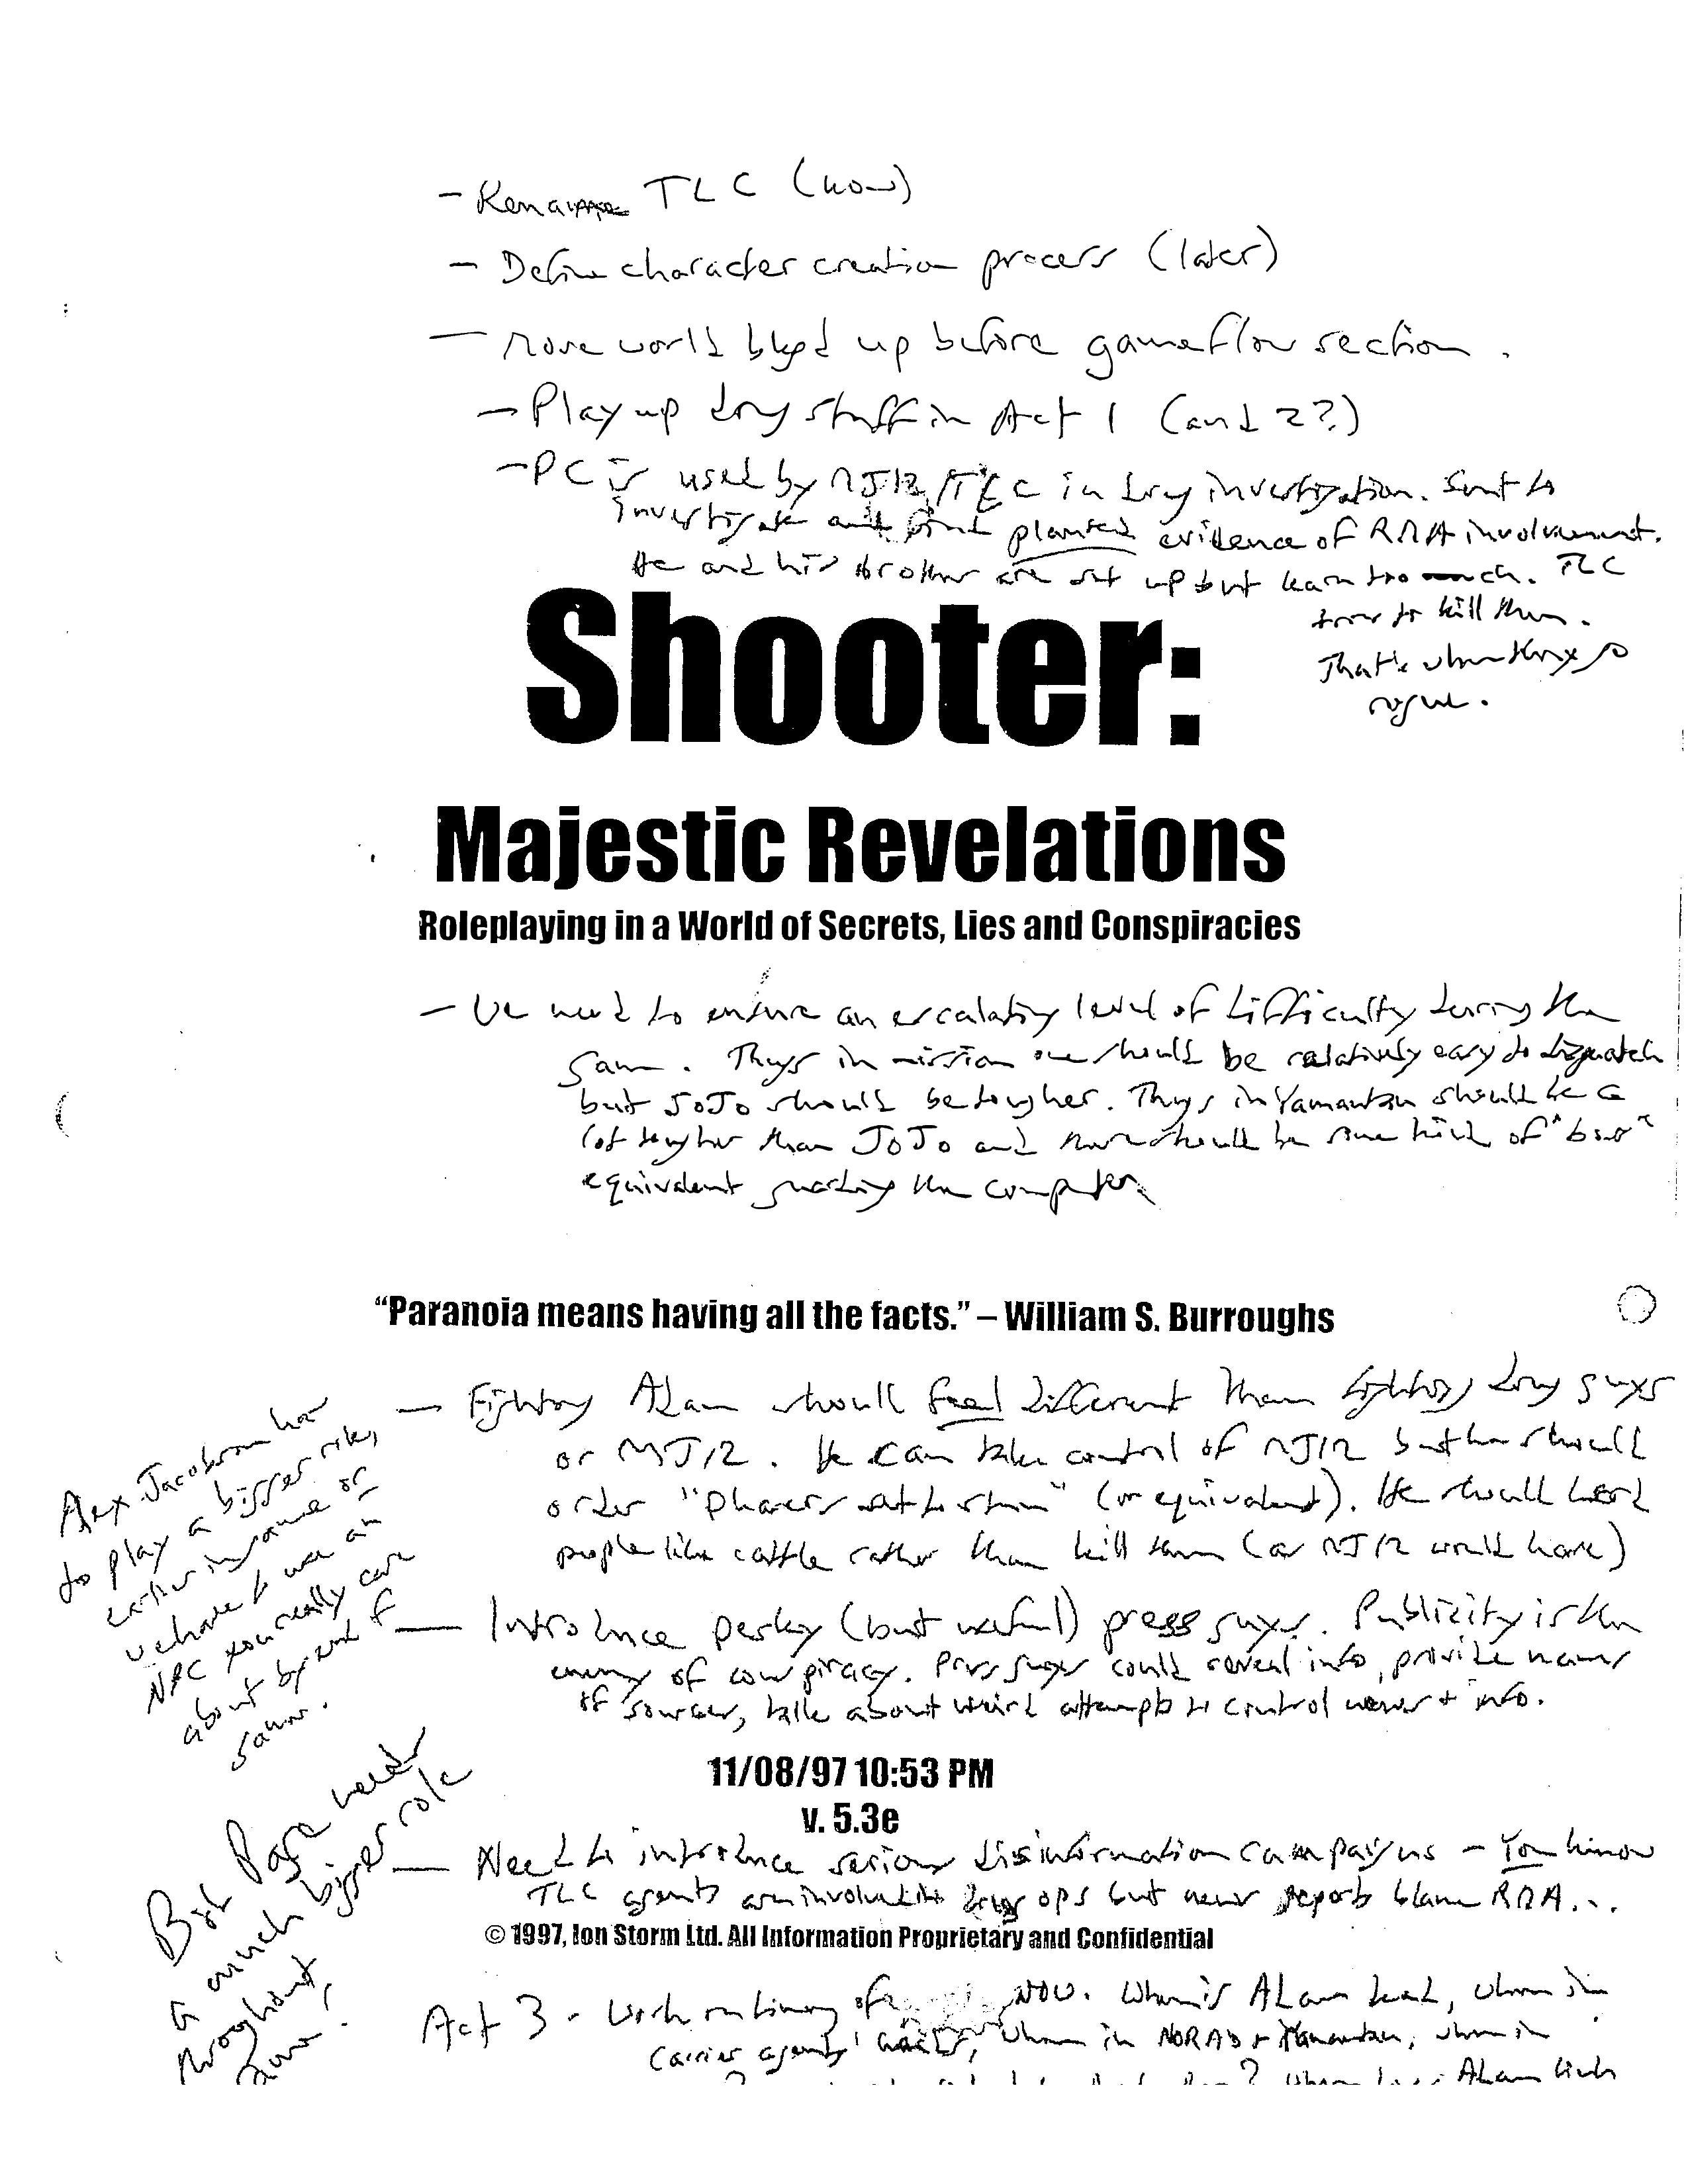 - Rename TLC (now)
- Define character creation process (later)
- Move world bkgd up before gameflow section.
- Play up drug stuff in Act 1 (and 2?)
- PC is used by MJ12/TLC in drug investigation. Sent to
investigate and find planted evidence of RMA involvement.
He and his brother are set up but learn too much. TLC
tries to kill them.
That's when they go
rogue.
Shooter:
Majestic Revelations
Roleplaying in a World of Secrets, Lies and Conspiracies
- We need to ensure an escalating level of difficulty during the
game. Thugs in mission one should be relatively easy to dispatch
but JoJo should be tougher. Thugs in Yamantau should be a
lot tougher than JoJo and there should be some kind of "boss"
equivalent guarding the computer
"Paranoia means having all the facts." – William S. Burroughs
- Fighting Adam should feel different than fighting drug guys
or MJ12. He can take control of MJ12 but he should
order "phasers set to stun" (or equivalent). He should herd
people like cattle rather than kill them (as MJ12 would have)
- Introduce pesky (but useful) press guys. Publicity is the
enemy of conspiracy. Press guys could reveal info, provide names
of sources, talk about weird attempts to control news + info.
Alex Jacobson has
to play a bigger role,
earlier in game or
we have to use an
NPC you really care
about by end of
game.
Bob Page needs
a much bigger role
throughout
game!
11/08/97 10:53 PM
v. 5.3e
- Need to introduce serious disinformation campaigns - You know
TLC agents are involved in drug ops but news reports blame RMA...
© 1997, Ion Storm Ltd. All Information Proprietary and Confidential
Act 3 - Work on timing of NOW. When is Adam dead, when in
carrier agents, when in NORAD + Yamantau, when in
? When does Adam